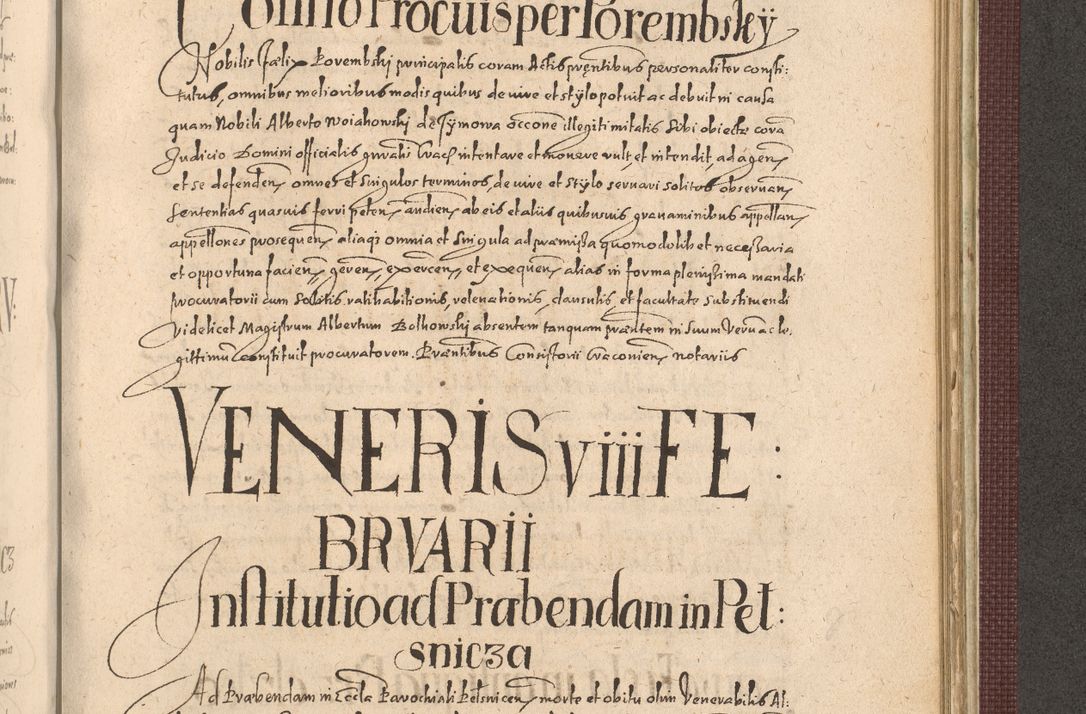 Constitutio Procuris per Porembskÿ
Nobilis Fœlix Porembskj principalis coram Actis pręntibus personaliter consti:
tutus, omnibus melioribus modis quibus de iure et stÿlo potuit ac debuit in causa
quam Nobili Alberto Woiakowskj de Tÿmowa occone illegitimitatis sibi obiectæ corā
Judicio Domini officialis gnralis Crac intentare et mouere vult, et intendit, ad agen
et se defenden omnes et singulos terminos, de iure et stÿlo seruari solitos obseruan
sententias quasuis ferri peten audien, ab eis et aliis quibusuis grauaminibus appellan
appellones prosequen aliaqz omnia et singula ad præmissa quomodolibet necessaria
et opportuna facien, geren, exercen, et exequen alias in forma plenissima mandati
procuratorii cum solitis ratihabitionis, releuationis, clausulis, et facultate substituendi
Videlicet Magistrum Albertum Bolhowskj absentem tanquam præntem in suum verum ac le,
gittimū constituit procuratorem. Præntibus Consistorii Cracouien notariis
VENERIS viii FE:
BRVARII
Institutio ad Præbendam in Pet:
snicza
Ad Præbendam in Eccla Parochiali Petsnicen, morte et obitu olim Venerabilis Al: